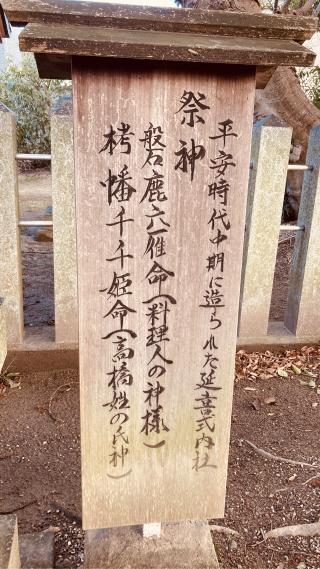 平安時代中期に造られた延喜式内社
祭神
磐鹿六雁命(料理人の神様)
栲幡千千姫命(高橋姓の氏神)